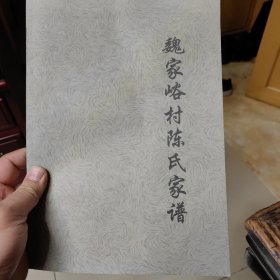 魏家峪村陈氏家谱